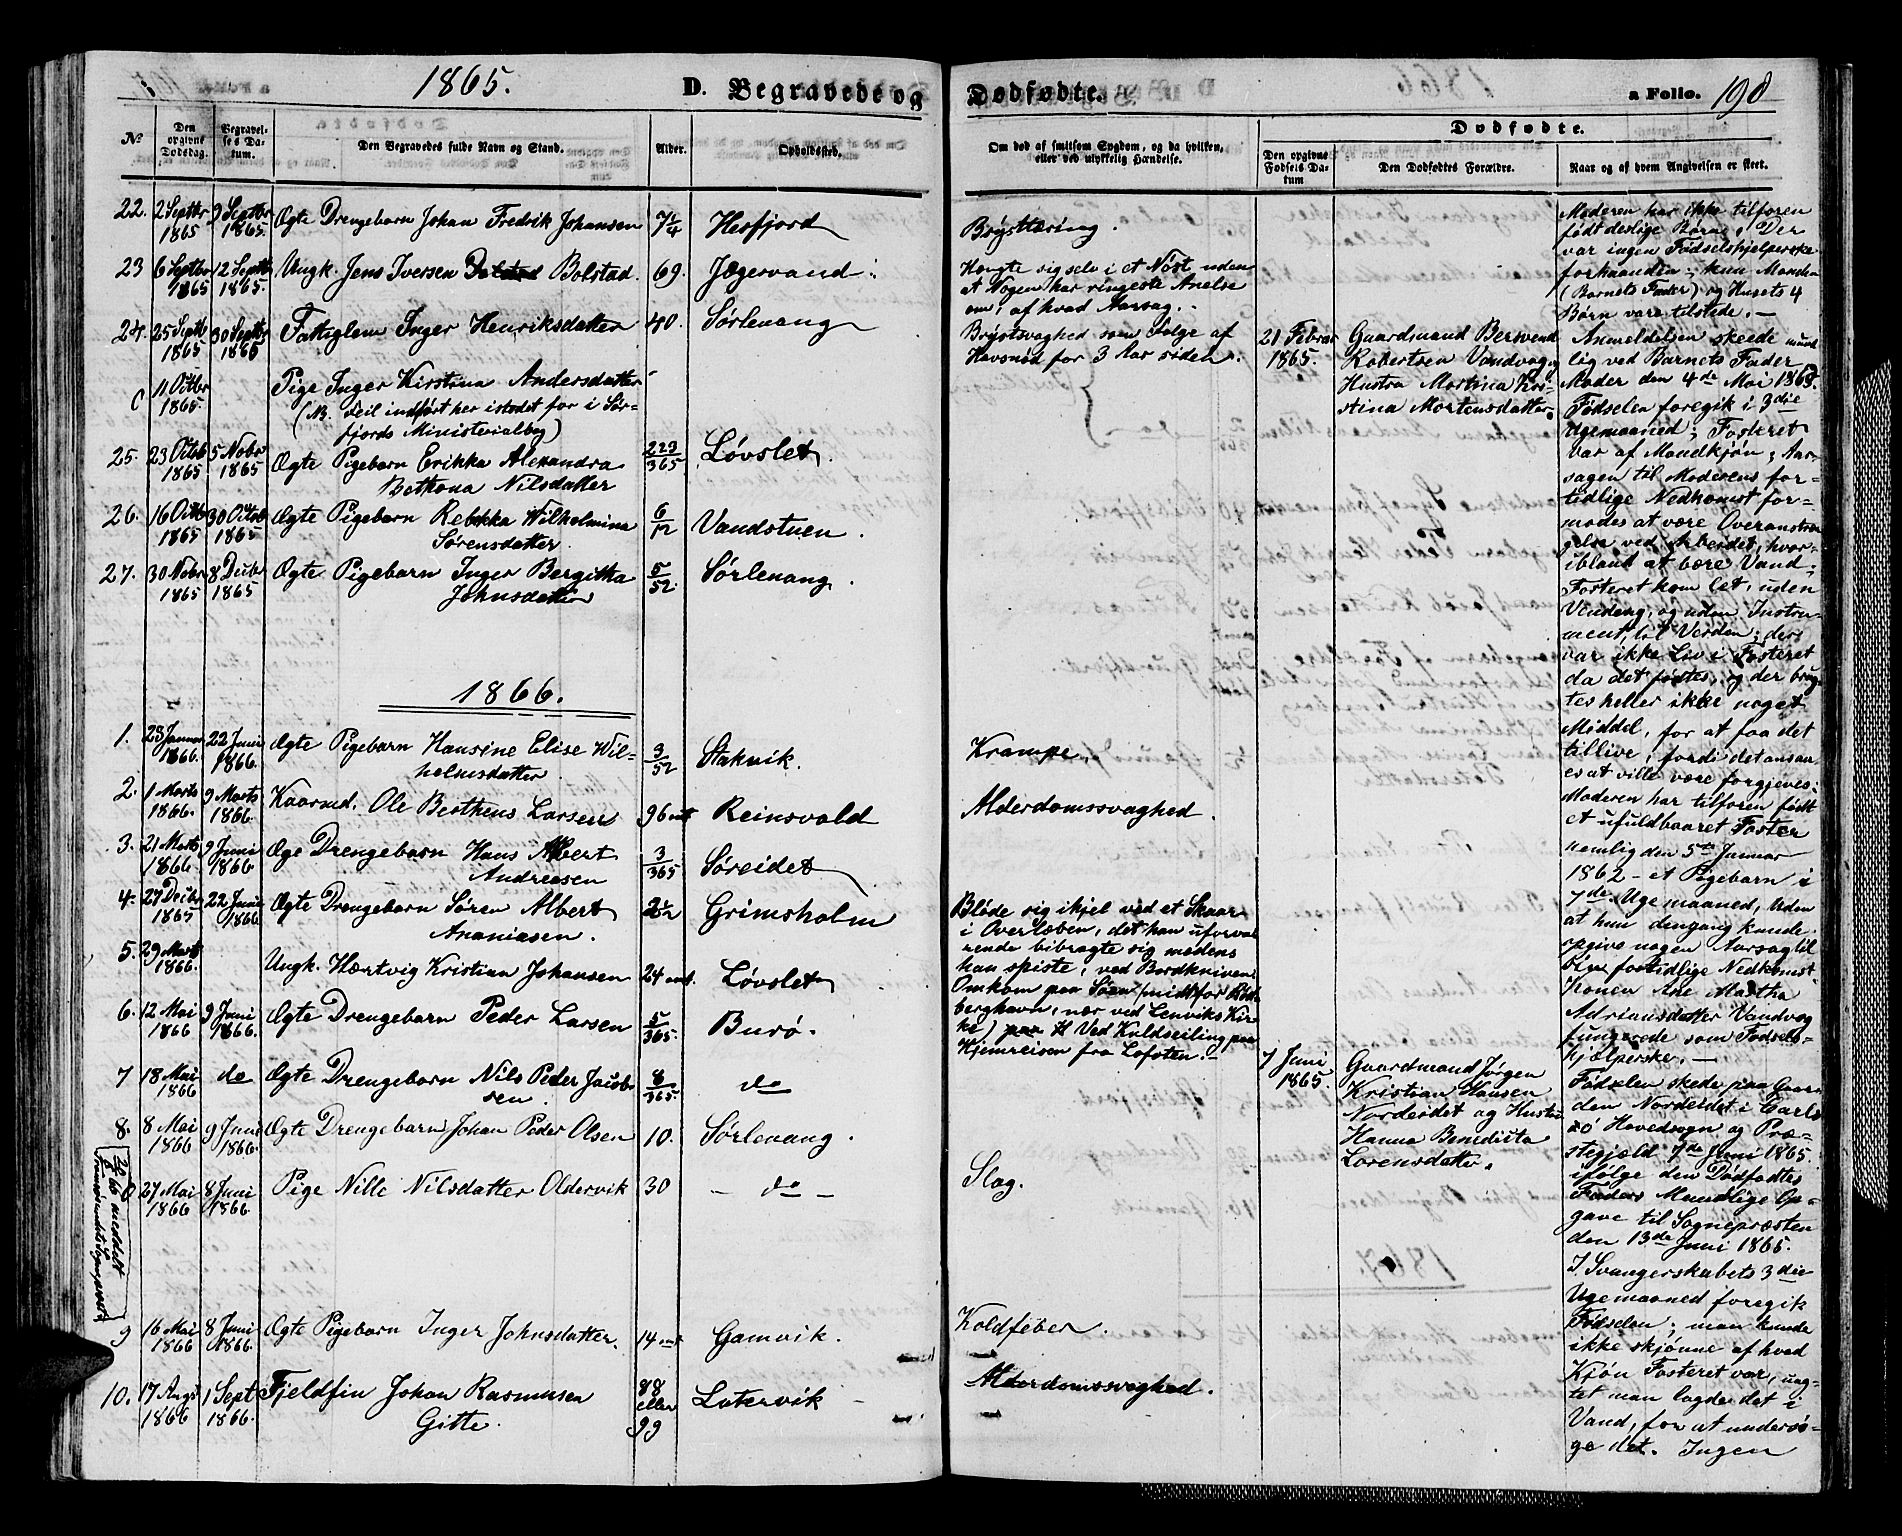 1865.
D. Begravede og
Dødfødte.
a Folio. 198
No
Den opgivne Dødsdag.
Begravelses Datum.
Den Begravedes fulde Navn og Stand.
Alder.
Opholdssted.
Om død af smitsom Sygdom, og da hvilken, eller ved ulykkelig Hændelse.
Dødfødte.
Den opgivne Fødsels Datum
Den Dødfødtes Forældre.
Naar og af hvem Angivelsen er skeet.
22. 2 Septbr 1865 9 Septbr 1865. Ægte Drengebarn Johan Fredrik Johansen 7 1/4 Hesfjord Brysttæring.
23 6 Septbr 1865 12 Septb 1865. Ungk. Jens Iversen Bolstad. 69. Jægervand.
Hængte sig selv i et Nøst, uden
at Nogen har ringeste Anelse
om, af hvad Aarsag.
24. 25 Septb 1865 30 Septbr 1865 Fattiglem Inger Henriksdatter 40. Sørlenang
Brystsvaghed som Følge af
Havsnød for 3 Aar siden.
0 11 Octbr 1865. Pige Inger Kirstina Andersdatter
(NB. Feil indført her istedet for i Sør-
fjords Ministerialbog)
25. 23 Octob 1865 5 Nobr 1865 Ægte Pigebarn Erikka Alexandra
Bethona Nilsdatter 223/365 Løvslet.
26. 16 Octbr 1865 30 Octob 1865 Ægte Pigebarn Rebekka Wilhelmina
Sørensdatter. 6/12 Vandstuen.
27. 30 Nobr 1865 8 Decbr 1865 Ægte Pigebarn Inger Bergitha
Johnsdatter 5/52. Sørlenang.
1866.
1. 23 Januar 1866. 22 Juni 1866. Ægte Pigebarn Hansine Elise Wil-
helmsdatter. 3/52 Stakvik. Krampe.
2. 1 Marts 1866. 9 Marts 1866. Kaarmd. Ole Berthens Larsen 96 Reinsvold Alderdomssvaghed.
3. 21 Marts 1866 9 Juni 1866. Ægte Drengebarn Hans Albert
Andreasen 3/365 Søreidet
4. 27 Decbr 1865 22 Juni 1866. Ægte Drengebarn Søren Albert
Ananiasen. 2 1/2 Grimsholm
Blødde sig ihjel ved et Skaar
i Overlæben, det han uforva-
rende bibragte sig medens
han spiste, ved Bordkniven.
5. 29 Marts 1866. Ungk. Hertvig Kristian Johansen 24 Løvslet
Omkom paa Søen (midt for Rød-
berghavn, nær ved Lenviks Kir-
ke) Ved Kuldseiling paa
Hjemreisen fra Lofoten.
6. 12 Mai 1866 9 Juni 1866. Ægte Drengebarn Peder Larsen 5/365. Burø.
7 18 Mai 1866 do Ægte Drengebarn Nils Peder Jacob-
sen. 8/365 do
8. 8 Mai 1866 9 Juni 1866. Ægte Drengebarn Johan Peder Olsen 10. Sørlenang.
0 27 Mai 1866 8 Juni 1866 Pige Nille Nilsdatter Oldervik 30 - do - Slag.
9 16 Mai 1866 8 Juni 1866. Ægte Pigebarn Inger Johnsdatter. 14 Gamvik. Koldfeber.
10. 17 Augs 1866 1 Sept 1866. Fjeldfin Johan Rasmusen
Gitte. 88 eller 99 Latervik Alderdomssvaghed.
21 Februar 1865.
Gaardmand Berwend
Robertsen Vandvaag og
Hustru Martina Kri-
stina Mortensdatter
7 Juni 1865.
Gaardmand Jørgen
Kristian Hansen
Nordeidet og Hustru
Hanna Benedicta
Lorensdatter.
Moderen har ikke tilforen
født deslige Børn; Der
var ingen Fødselshjelperske
forhaanden; kun Manden
(Barnets Fader) og Husets 4
Børn vare tilstede. -
Anmeldelsen skeede mundt-
lig ved Barnets Fader
Moder den 4de Mai 1865.
Fødselen foregik i 3die
Ugemaaned; Fosteret
var af Mandkjøn; Aar-
sagen til Moderens for-
tidlige Nedkomst for-
modes at være Overanstræn-
gelse ved Arbeidet, hvor-
iblandt at bære Vand;
Fosteret kom let, uden
Vending, og uden Instru-
ment, til Verden; der
var ikke Liv i Fosteret
da det fødtes, og der brug-
tes heller ikke noget
Middel, for at faa det
tillive, fordi det ansaa-
es at ville være forgjeves.
Moderen har tilforen født
et ufuldbaaret Foster
nemlig den 5te Januar
1862 - et Pigebarn i
7de Ugemaaned, uden
at hun dengang kunde
opgive nogen Aarsag til
sin fortidlige Nedkomst
Konen Ane Martha
Adriansdatter Vandvaag
fungerede som Fødsels-
hjælperske. -
Fødselen skede paa Gaar-
den Nordeidet i Carls-
ø Hovedsogn og Præ-
stegjæld 7de Juni 1865.
ifølge den Dødfødtes
Faders Mundlige Op-
gave til Sognepræsten
den 13de Juni 1865.
I Svangerskabets 3die
Ugemaaned foregik
Fødselen; man kunde
ikke skjønne af hvad
Kjøn Fosteret var, uag-
tet man lagde det i
Vand, for at undersø-
ge det. Ingen